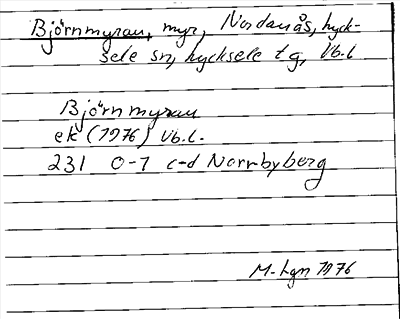 Björnmyran, myr, Nordanås, Lyck-
sele sn, Lycksele tg, Vb.l
Björnmyran
ek (1976) Vb.l.
231 0-1 c-d Norrbyberg
M. Lgn 1976